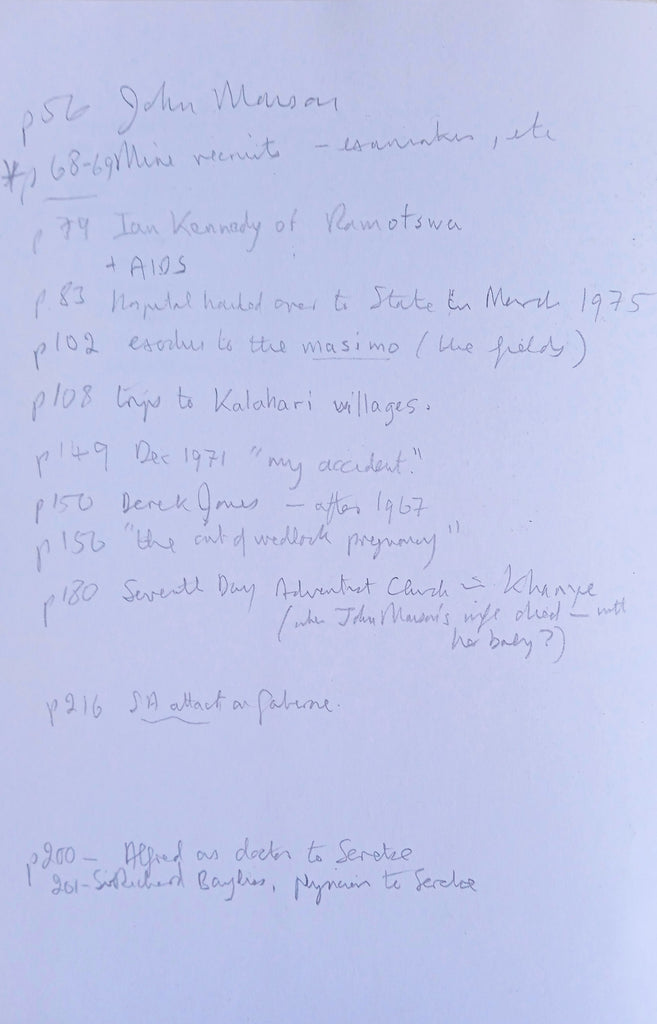 p56 John Marson
*p 68-69 Mine recruits - examinations, etc
p 79 Ian Kennedy of Ramotswa
+ AIDS
p.83 Hospital handed over to State in March 1975
p102 exodus to the masimo (the fields)
p108 trips to Kalahari villages.
p149 Dec 1971 "my accident."
p150 Derek Jones - after 1967
p156 "the out of wedlock pregnancy"
p180 Seventh Day Adventist Church in Khanye
(when John Marson's wife died - with
her baby?)
p216 SA attack on Gaberone.
p200 - Alfred as doctor to Seretse
201 - Sir Richard Bayliss, physician to Seretse